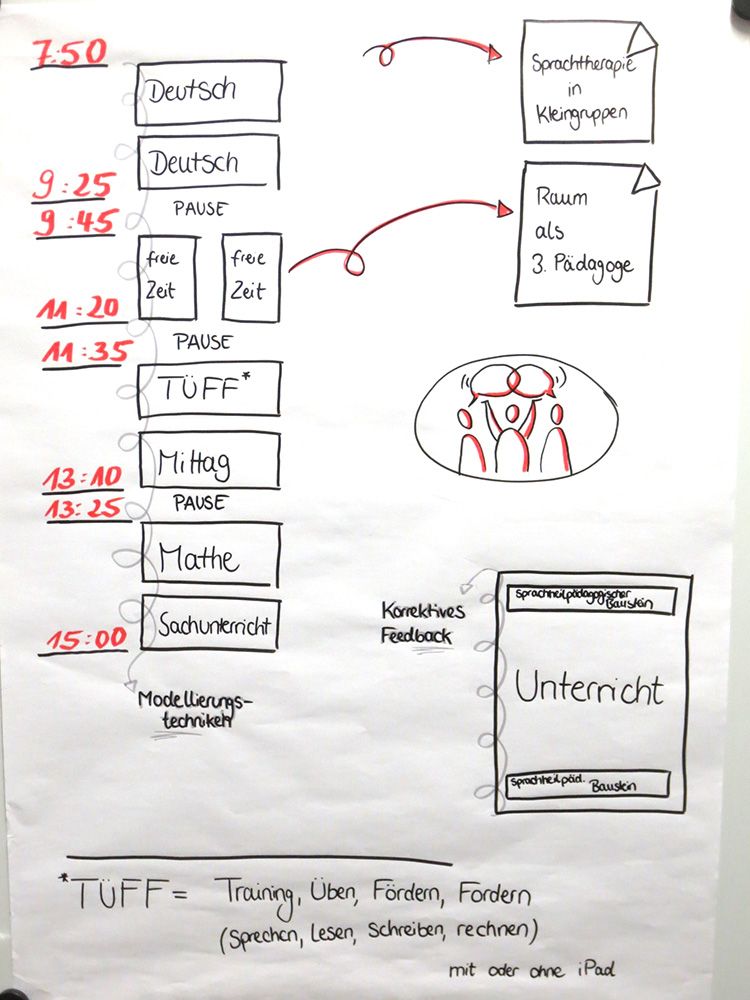 7:50
Deutsch
Deutsch
9:25
9:45
PAUSE
freie
Zeit
freie
Zeit
11:20
11:35
PAUSE
TÜFF*
Mittag
13:10
13:25
PAUSE
Mathe
Sachunterricht
15:00
Modellierungs-
techniken
Sprachtherapie
in
Kleingruppen
Raum
als
3. Pädagoge
Korrektives
Feedback
Sprachheilpädagogischer
Baustein
Unterricht
Sprachheilpäd.
Baustein
*TÜFF = Training, Üben, Fördern, Fordern
(Sprechen, Lesen, Schreiben, rechnen)
mit oder ohne iPad